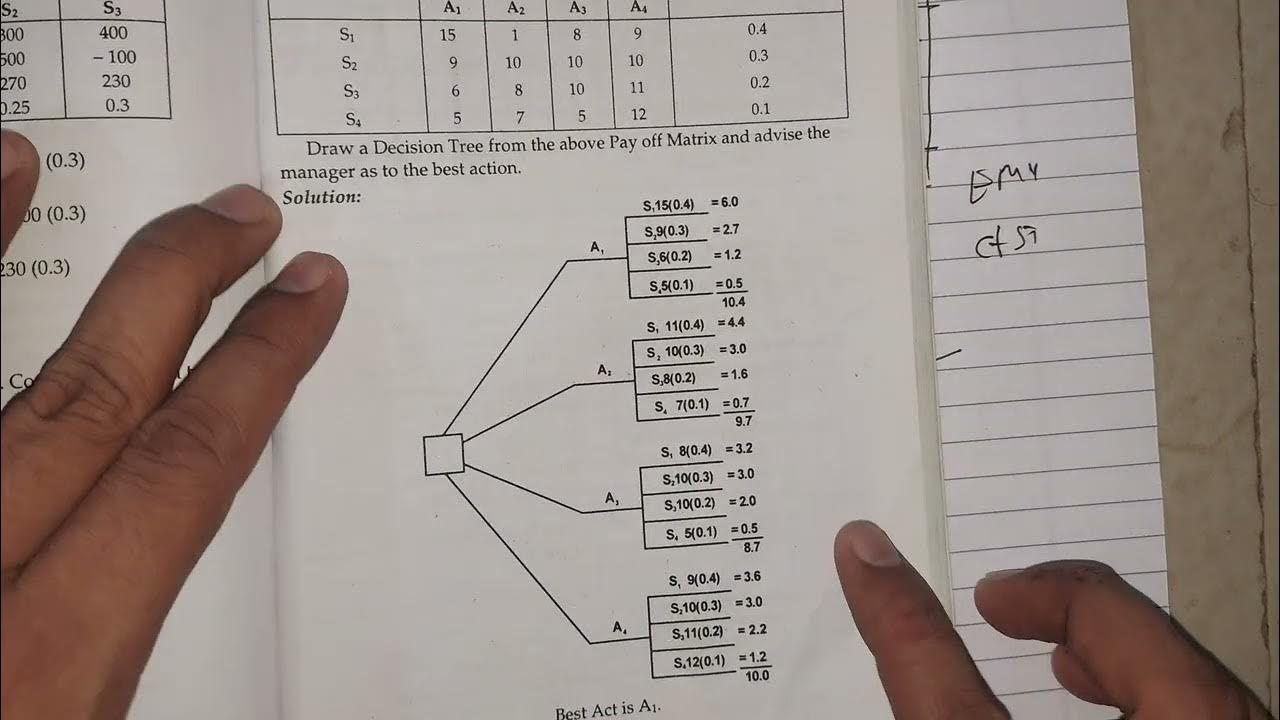 S₂ S₃
300 400
500 – 100
270 230
0.25 0.3
(0.3)
00 (0.3)
230 (0.3)
A₁ A₂ A₃ A₄
S₁ 15 1 8 9 0.4
S₂ 9 10 10 10 0.3
S₃ 6 8 10 11 0.2
S₄ 5 7 5 12 0.1
Draw a Decision Tree from the above Pay off Matrix and advise the
manager as to the best action.
Solution:
S₁15(0.4) = 6.0
A₁ S₂9(0.3) = 2.7
S₃6(0.2) = 1.2
S₄5(0.1) = 0.5
10.4
S₁ 11(0.4) = 4.4
S₂ 10(0.3) = 3.0
A₂ S₃8(0.2) = 1.6
S₄ 7(0.1) = 0.7
9.7
S₁ 8(0.4) = 3.2
S₂10(0.3) = 3.0
A₃ S₃10(0.2) = 2.0
S₄ 5(0.1) = 0.5
8.7
S₁ 9(0.4) = 3.6
S₂10(0.3) = 3.0
A₄ S₃11(0.2) = 2.2
S₄12(0.1) = 1.2
10.0
Best Act is A₁.
EMV